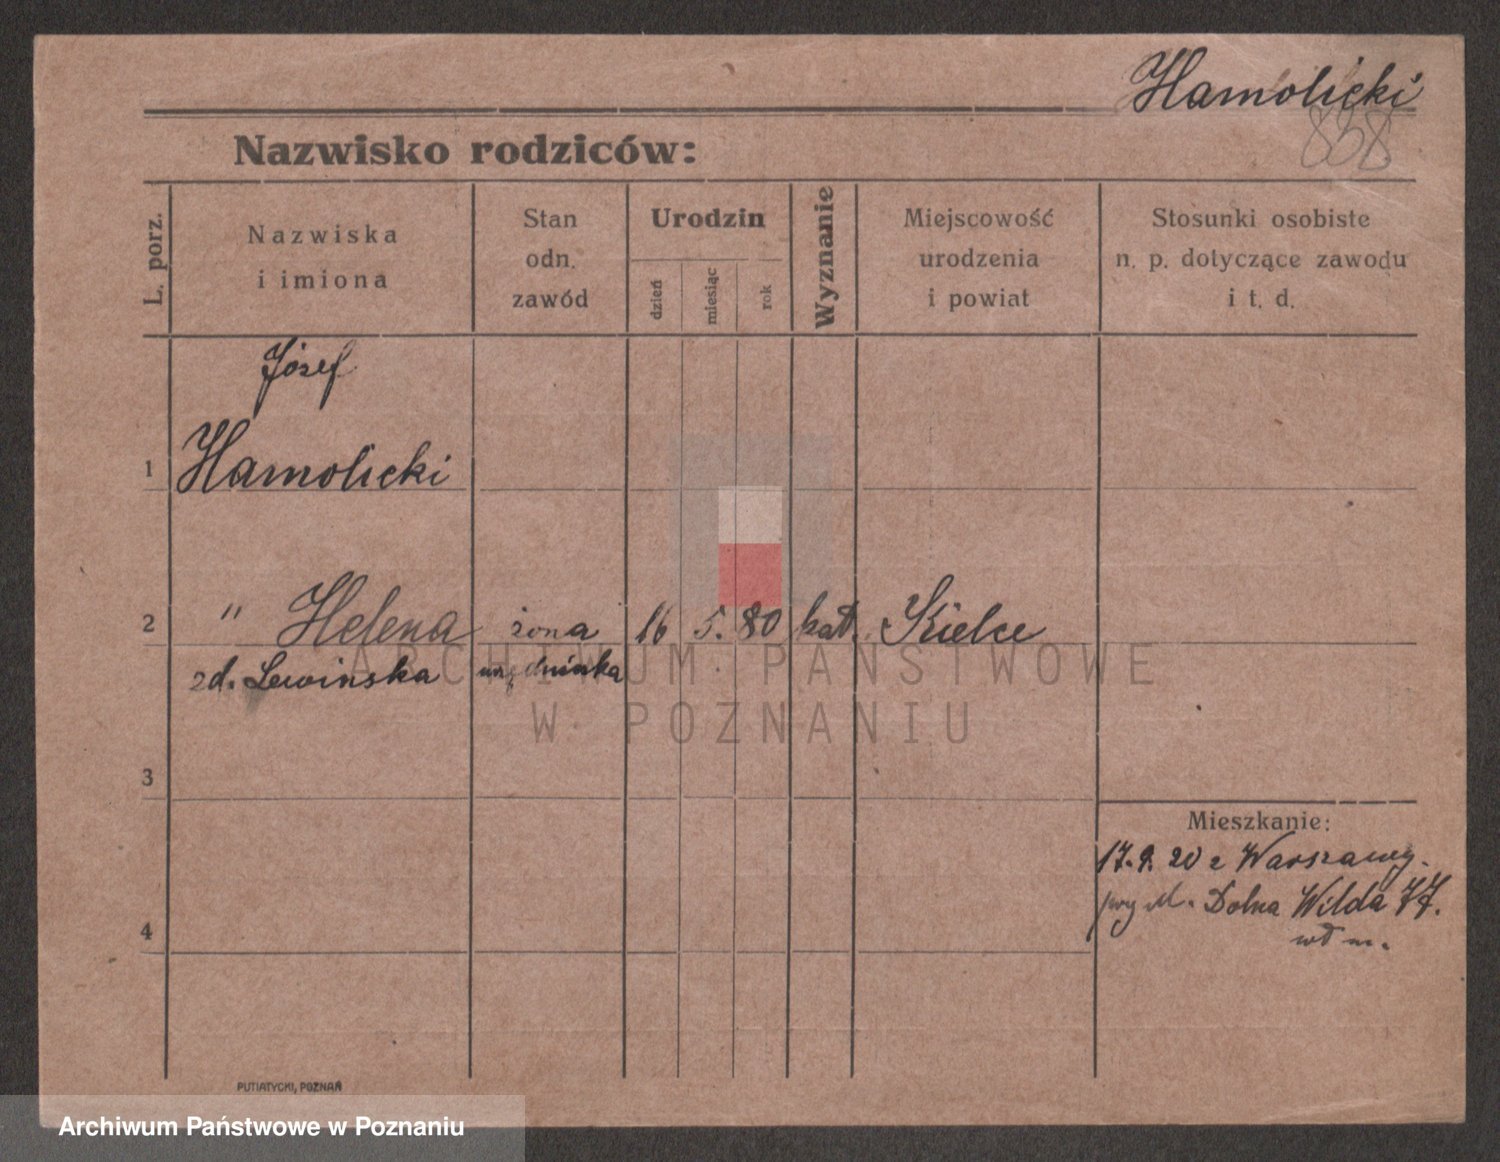 Hamolicki
868
Nazwisko rodziców:
L. porz.
Nazwiska
i imiona
Stan
odn.
zawód
Urodzin
dzień
miesiąc
rok
Wyznanie
Miejscowość
urodzenia
i powiat
Stosunki osobiste
n. p. dotyczące zawodu
i t. d.
Józef
1 Hamolicki
2 " Helena żona 16 5. 80 kat. Kielce
zd. Lewińska urzędniczka
ARCHIWUM PAŃSTWOWE
W POZNANIU
3
Mieszkanie:
17.9.20 z Warszawy.
Dolna Wilda 77.
4
PUTIATYCKI, POZNAŃ
Archiwum Państwowe w Poznaniu